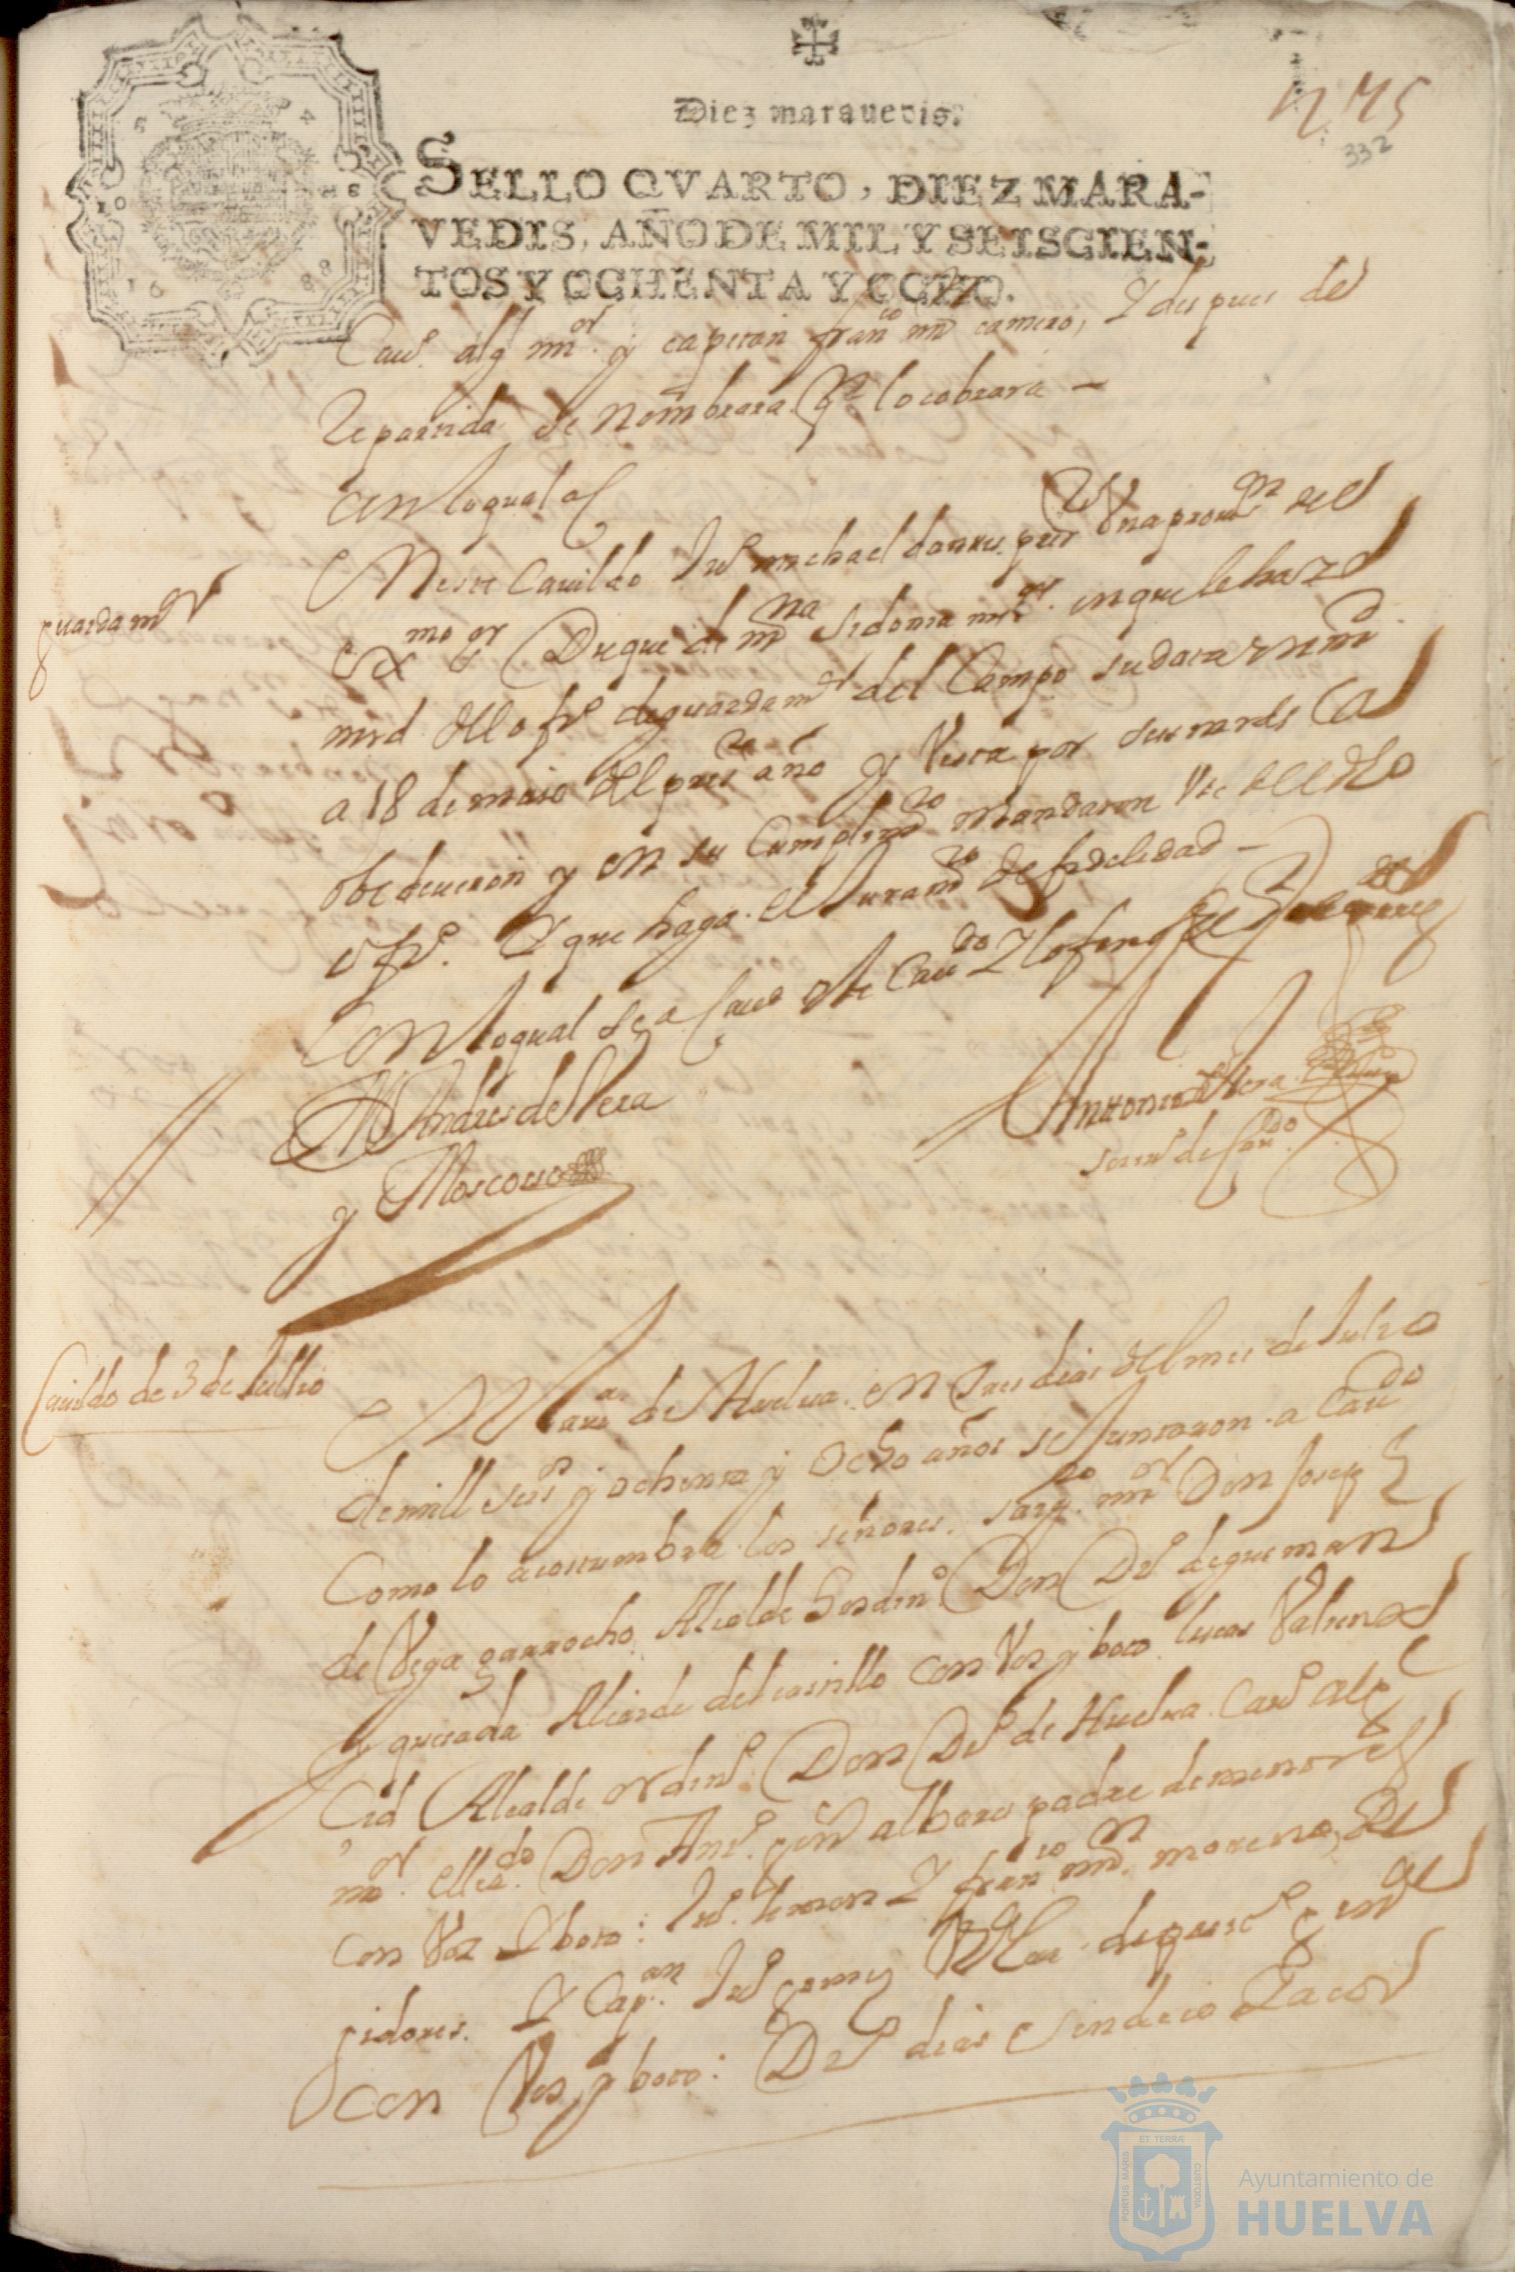 Diez maravedis.
275
332
SELLO QVARTO, DIEZ MARA-
VEDIS, AÑO DE MIL Y SEISCIEN-
TOS Y OCHENTA Y OCHO.
1688
Cauº. alg mor. y capitan franco mrn camero, Y despues de
Repartida se nombrara qn lo cobrara —
Con lo qual
guarda mor
En este Cauildo Juº michael
exmo sr Duque de mna sidonia mi sr. en que le haze
mrd del ofiº de guarda mor del Campo su data en md
a 18 de maio del preste año y Vista por sus mrds la
obedecieron y en su Cumplimto mandaron Use el dho
ofiº. Y que haga el Juramto de fidelidad —
Con lo qual se acauo este Caudo Y lo firmo
Andres de Vera
y Moscoso
Antonio de Vera
scriu de Caudo
Cauildo de 3 de Jullio
En la Va de Huelua en tres dias del mes de Julio
de mill seiss y ochenta y ocho años se Juntaron a Caudo
Como lo acostumbra los señores sargto mor Don Josep
de Vega garrocho Alcalde hordinº Don Dº de gusman
y quesada Alcaide del castillo con Vos y boto lucas Valiena
Cid Alcalde ordinº Don Dº de Huelua Cauº alg
mor. el lizdo Don Antº albares padre de menores
con Voz Y boto: Juº. lemon Y franco mrn. moreno, Re
gidores. Y Capan Juº gomes
con Vos y boto: Dº dias sindico
PORTUS MARIS
ET TERRÆ
CUSTODIA
Ayuntamiento de
HUELVA